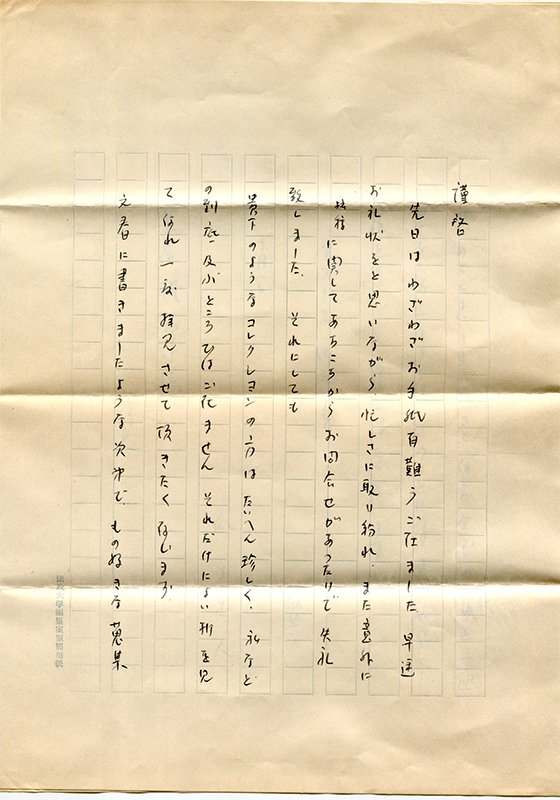 謹啓
先日はわざわざお手紙有難うございました。早速
お礼状をと思いながら、忙しさに取り紛れ、また意外に
に関してあちこちからお問合せがあったりで失礼
致しました。それにしても
貴下のようなコレクションの方はたいへん珍しく、私など
の到底及ぶところではございません それだけによい折を見
て何れ一度拝見させて頂きたく存じます。
文春に書きましたような次第で、もの好きな蒐集
法政大学編集室原稿用紙